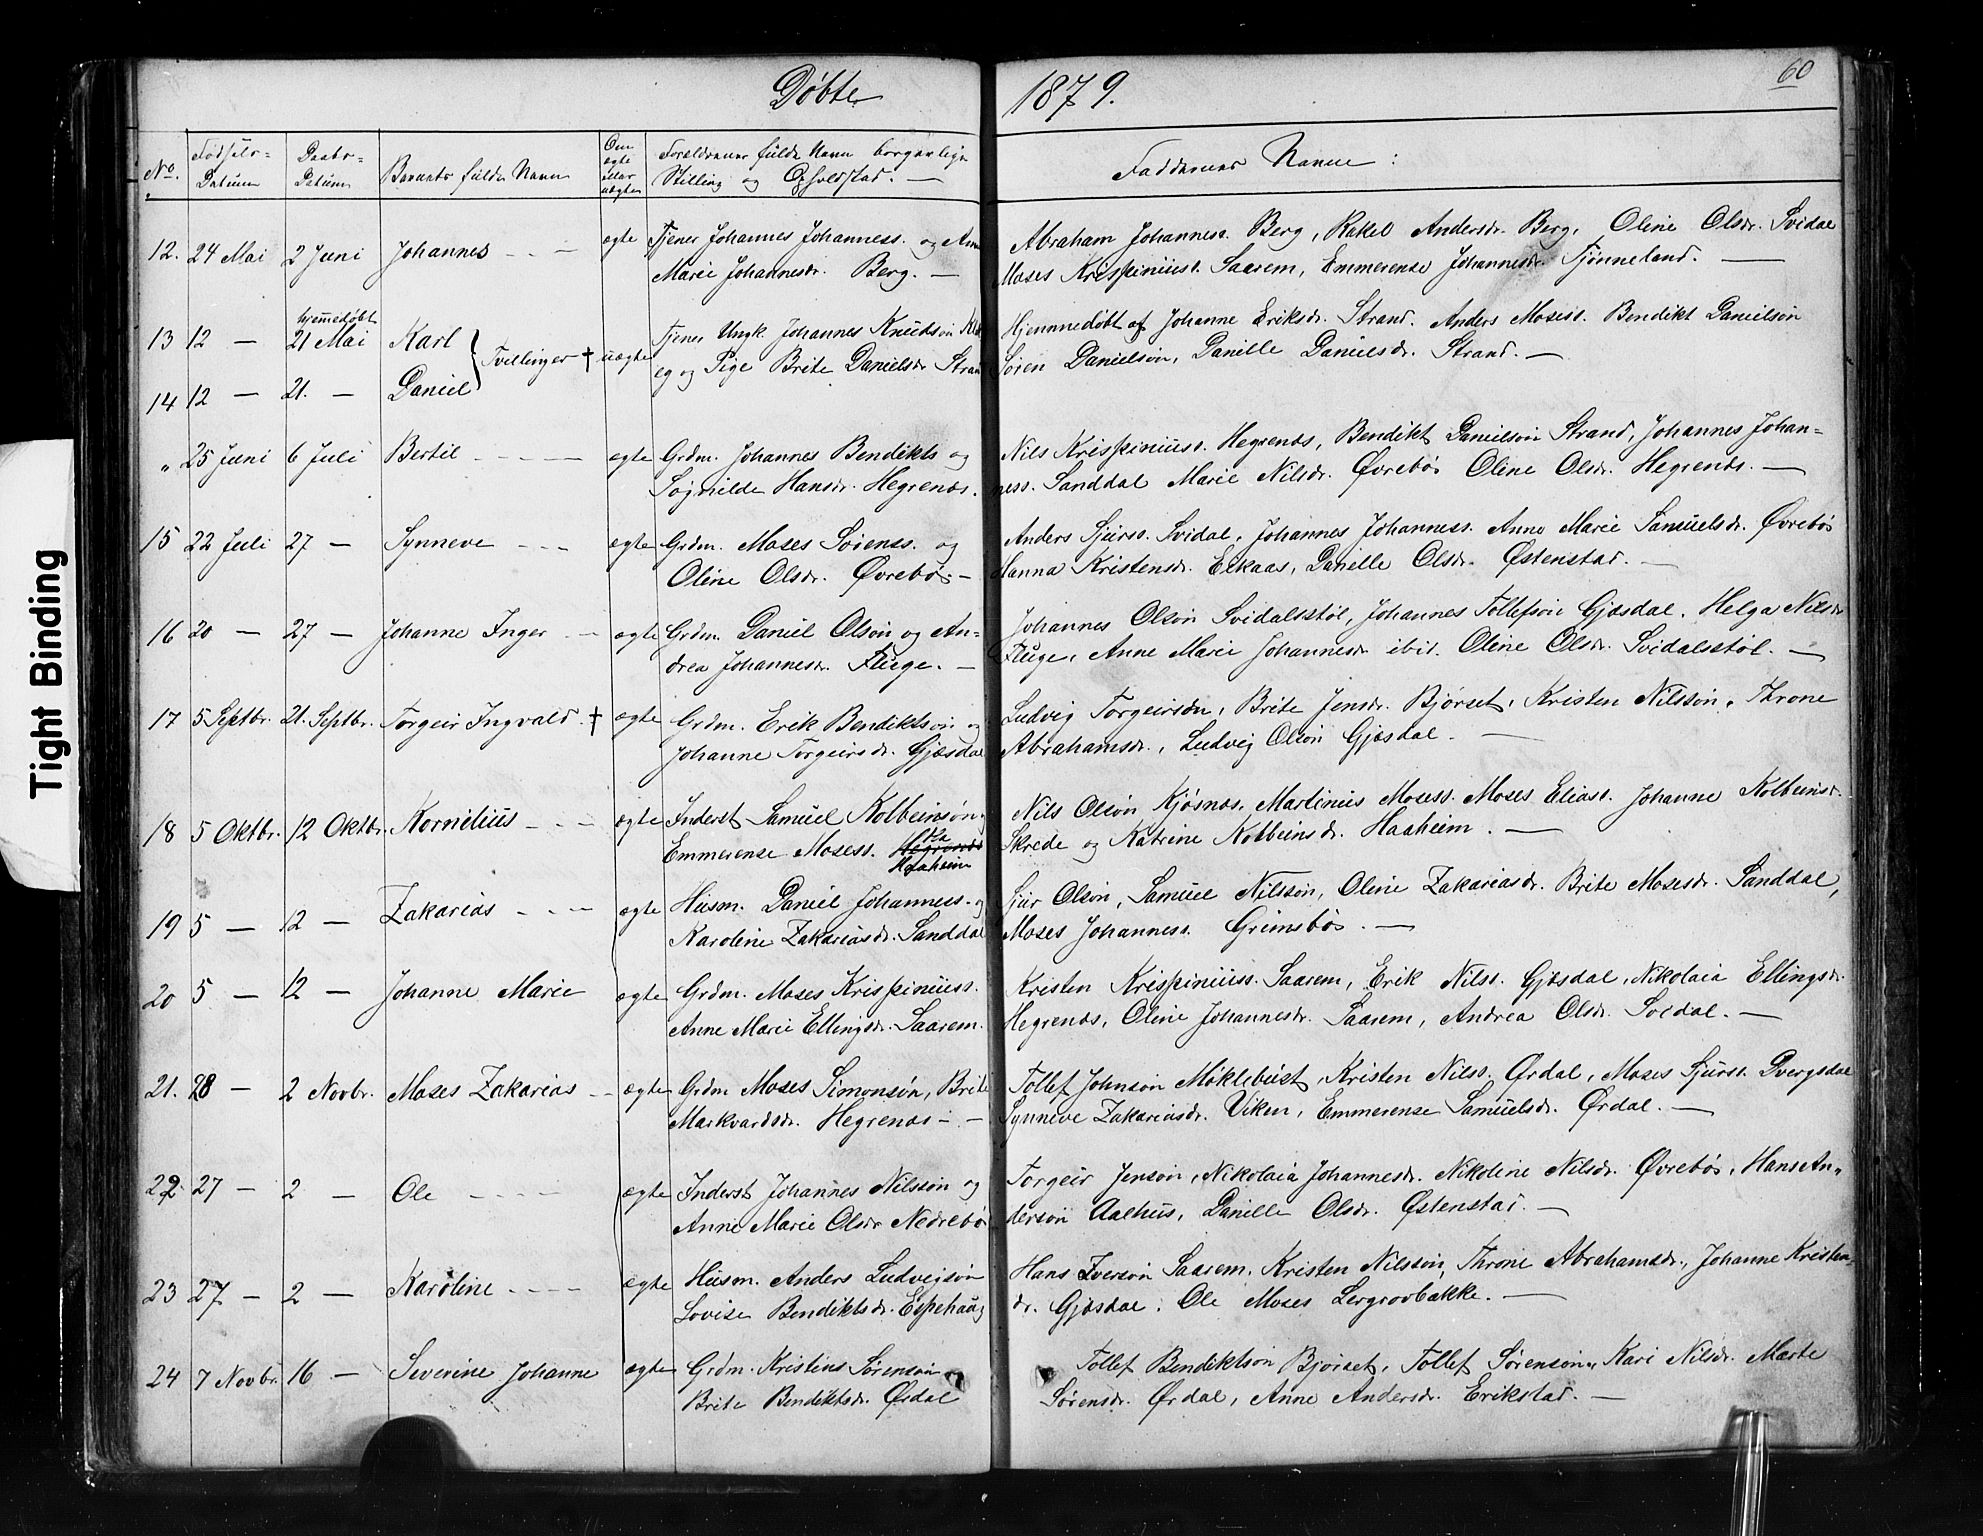 Døbte 1879. 60
No. Fødsels-Datum Daabs-Datum Barnets fulde Navn Om ægte eller uægte Forældrenes fulde Navn borgerlige Stilling og Opholdstad. — Faddernes Navne:
12. 24 Mai 2 Juni Johannes - - - ægte Tjener Johannes Johanness. og Anne
Marie Johannesdr. Berg. —
Abraham Johanness. Berg, Rakel Andersdr. Berg, Oline Olsdr. Svidal
Moses Krispinuss. Saarem, Emmerense Johannesdr. Tjønneland. —
13 12 — hjemmedøbt 21 Mai Karl
Tvillinger † uægte Tjener Ungk. Johannes Knudson
og Pige Brite Danielsdr. Strand
14 12 — 21. — Daniel
Hjemmedøbt af Johanne Eriksdr. Strand. Anders Mosess. Bendikt Danielson
Søren Danielson, Danille Danielsdr. Strand. —
" 25 Juni 6 Juli Bertil - - - - ægte Grdm. Johannes Bendikts og
Hansdr. Hegrenæs.
Nils Krispinuss. Hegrenæs, Bendikt Danielson Strand, Johannes Johan-
ness. Sanddal Marie Nilsdr. Øvrebø Oline Olsdr. Hegrenæs. —
15 22 Juli 27 — Synneve - - - ægte Grdm. Moses Sørenss. og
Oline Olsdr. Øvrebø. —
Anders Sjurss. Svidal, Johannes Johanness. Anne Marie Samuelsdr. Øvrebø
Hanna Kristensdr. Eikaas, Danille Olsdr. Østenstad. —
16 20 — 27 — Johanne Inger - - ægte Grdm. Daniel Olson og An-
drea Johannesdr. Fluge. —
Johannes Olson Svidalsstøl, Johannes Tollefson Gjæsdal. Helga Nilsdr
Fluge, Anne Marie Johannesdr ibid. Oline Olsdr. Svidalsstøl. —
17 5 Septbr. 21. Septbr. Torgeir Ingvald. † ægte Grdm. Erik Bendiktson og
Johanne Torgeirsdr. Gjæsdal
Ludvig Torgeirsøn, Brite Jensdr. Bjørset, Kristen Nilsson, Throne
Abrahamsdr., Ludvig Olson Gjæsdal. —
18 5 Oktbr. 12 Oktbr. Kornelius - - - ægte Inderst Samuel Kolbeinsøn
Emmerense Mosess. Hegrenæs Haaheim
Nils Olsøn Kjøsnæs, Martinus Mosess. Moses Eliass. Johanne Kolbeinsdr.
Skrede og Katrine Kolbeinsdr. Haaheim. —
19 5 — 12 — Zakarias - - - ægte Husm. Daniel Johanness. og
Karoline Zakariasdr. Sanddal
Sjur Olson, Samuel Nilsson, Oline Zakariasdr. Brite Mosesdr. Sanddal,
Moses Johanness. Grimsbø. —
20 5 — 12 — Johanne Marie ægte Grdm. Moses Krispinuss.
Anne Marie Ellingsdr. Saarem.
Kristen Krispinuss. Saarem, Erik Nilss. Gjæsdal, Nikolaia Ellingsdr.
Hegrenæs, Oline Johannesdr. Saarem, Andrea Olsdr. Svidal. —
21. 28 — 2 Novbr. Moses Zakarias - - ægte Grdm Moses Simonsøn, Brite
Markvardsdr. Hegrenæs - —
Tollef Johnson Møklebust, Kristen Nilss. Ørdal, Moses Sjurss. Dvergsdal
Synneve Zakariasdr. Viken, Emmerense Samuelsdr. Ørdal. —
22 27 — 2 — Ole - - - - ægte Inderst Johannes Nilsson og
Anne Marie Olsdr Nedrebø
Torgeir Jenson, Nikolaia Johannesdr. Nikoline Nilsdr. Øvrebø, Hans An-
derson Aalhus, Danille Olsdr. Østenstad. —
23 27 — 2 — Karoline - - - - ægte Husm. Anders Ludvigsøn
Lovise Bendiktsdr. Espehaug
Hans Iverson Saarem, Kristen Nilsson, Throne Abrahamsdr., Johanne Kristens-
dr. Gjæsdal, Ole Moses Lergrovbakke. —
24 7 Novbr. 16 — Severine Johanne ægte Grdm. Kristens Sørenson
Brite Bendiktsdr. Ørdal
Tollef Bendiktson Bjørset, Tollef Sørenson, Kari Nilsdr. Marte
Sørensdr. Ørdal, Anne Andersdr. Erikstad. —
Tight Binding